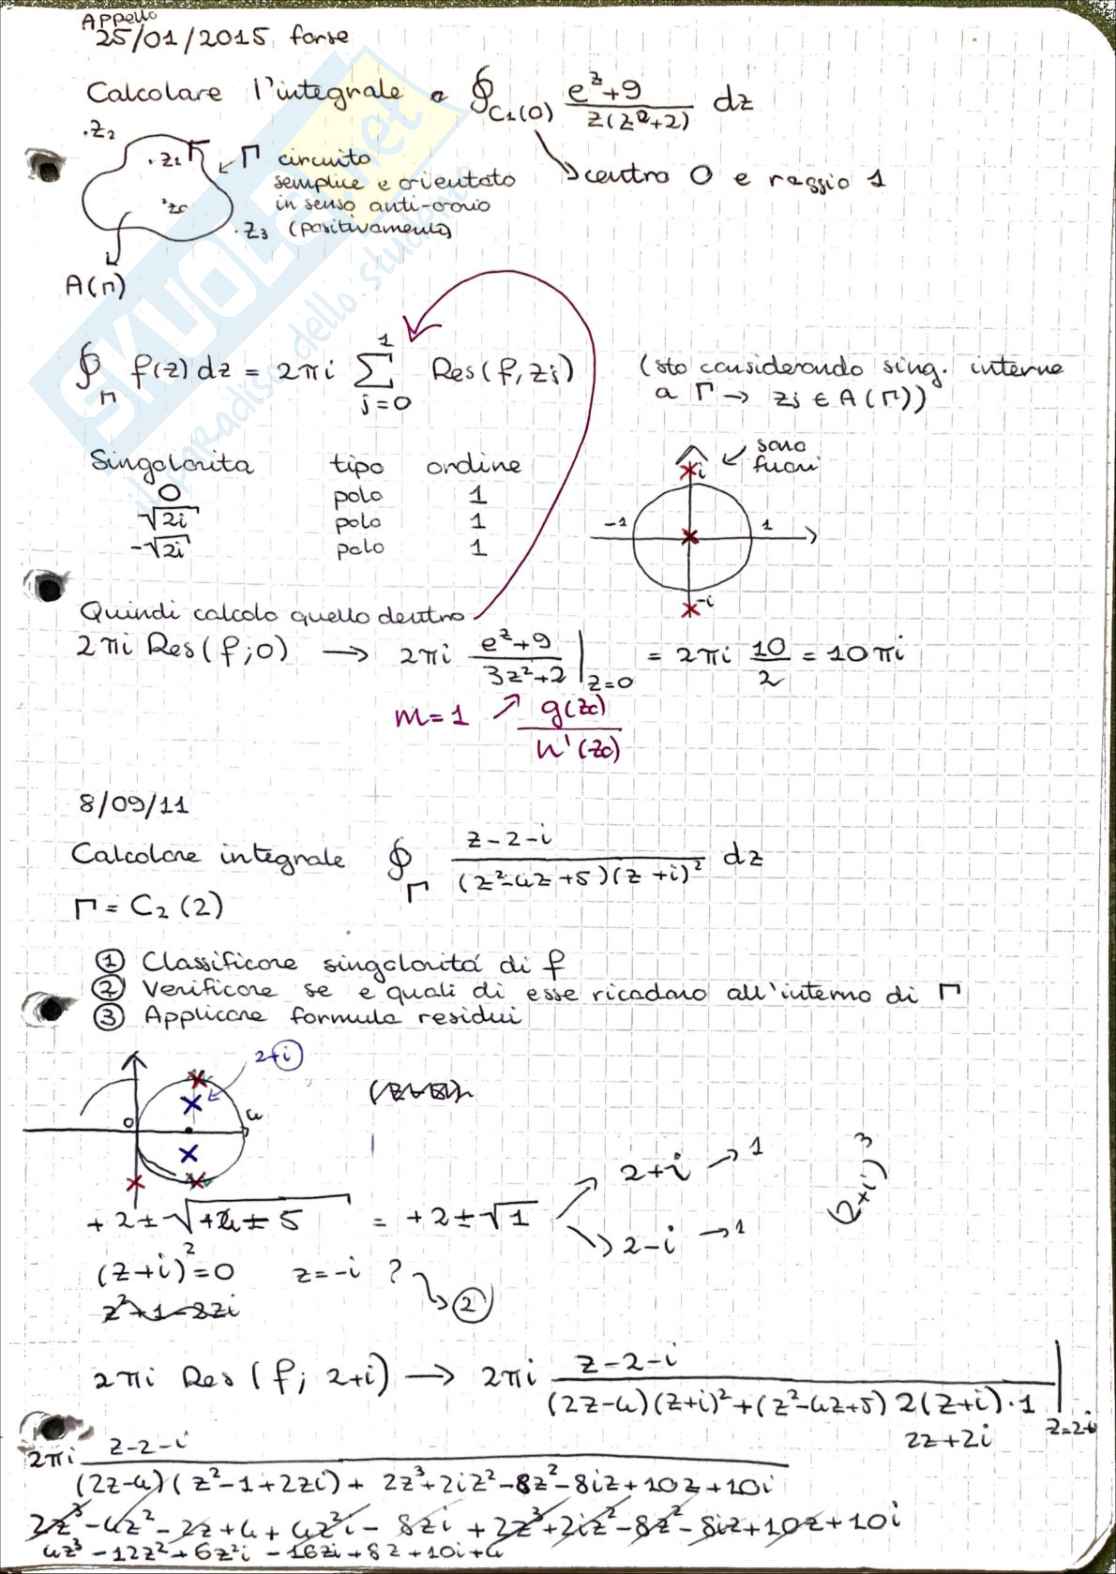 Appello
25/01/2015 forse
Calcolare l'integrale a ∮_{C₁(0)} (e^z+9)/(z(z²+2)) dz
→ centro 0 e raggio 1
.z₂
.z₁ Γ ← Γ circuito
semplice e orientato
in senso anti-orario
.z₀
.z₃ (positivamente)
A(Γ)
∮_Γ f(z) dz = 2πi ∑_{j=0}^{1} Res(f, zj) (sto considerando sing. interne
a Γ → zj ∈ A(Γ))
Singolarità tipo ordine
0 polo 1
√2i polo 1
-√2i polo 1
i ↙ sono
fuori
-1 1
-i
Quindi calcolo quello dentro
2πi Res(f;0) → 2πi (e^z+9)/(3z²+2) |_{z=0} = 2πi 10/2 = 10πi
m=1 ↗ g(z₀)/h'(z₀)
8/09/11
Calcolare integrale ∮_Γ (z-2-i)/((z²-4z+5)(z+i)²) dz
Γ = C₂(2)
① Classificare singolarità di f
② Verificare se e quali di esse ricadano all'interno di Γ
③ Applicare formula residui
2+i
0 4
+2±√+4±5 = +2±√1
2+i → 1
2-i → 1
(2+i)³
(z+i)²=0 z=-i ? → ②
z²+1-8zi
2πi Res(f; 2+i) → 2πi (z-2-i)/((2z-4)(z+i)²+(z²-4z+5)2(z+i)·1) |_{z=2+i}
2z+2i
2πi (z-2-i)/((2z-4)(z²-1+2zi)+2z³+2iz²-8z²-8iz+10z+10i)
2z³-4z²-2z+4+4z²i-8zi+2z³+2iz²-8z²-8iz+10z+10i
4z³-12z²+6z²i-16zi+8z+10i+4
SKUOLA.net
il paradiso dello studente